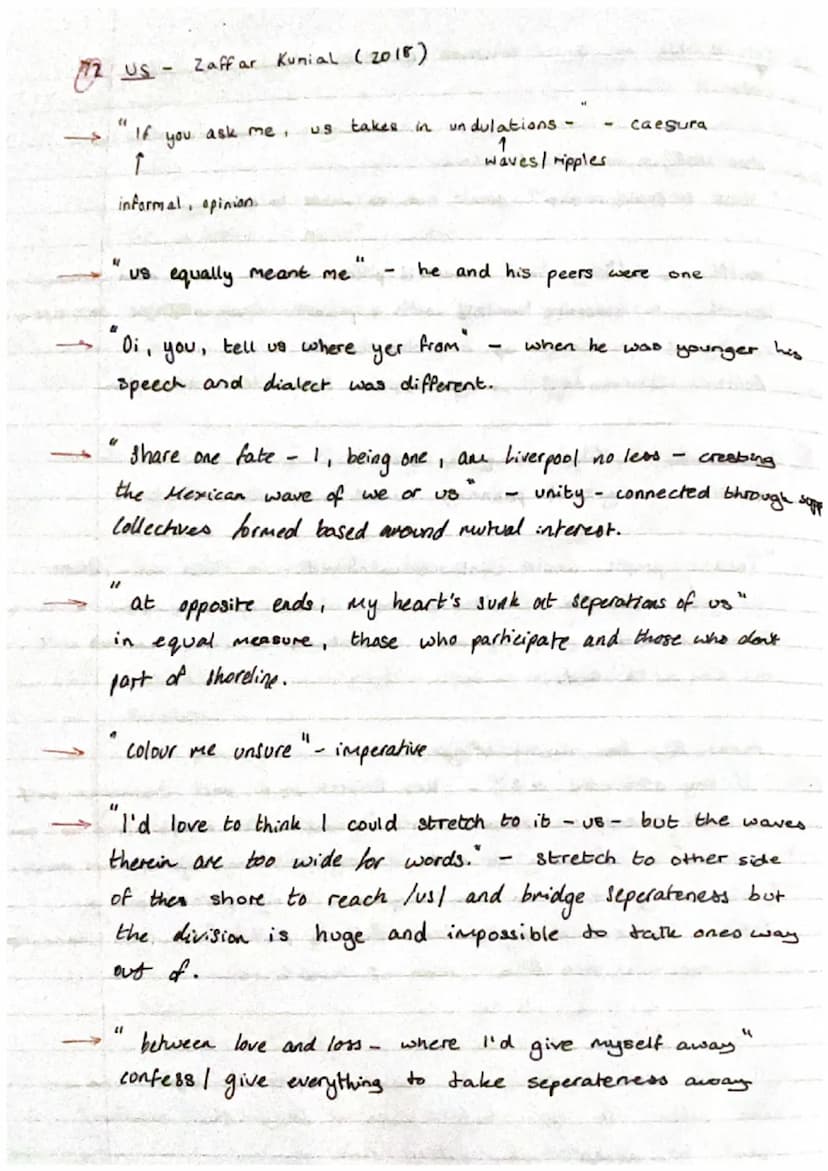 72 US - Zaffar Kunial (2018)
→ "If you ask me, us takes in undulations -" - caesura
↑ ↑
waves/ripples
informal, opinion
→ "us equally meant me" - he and his peers were one
→ "Oi, you, tell us where yer from" - when he was younger his
speech and dialect was different.
→ "Share one fate - I, being one, am Liverpool no less - creating
the Mexican wave of we or us" - unity - connected through
Collectives formed based around mutual interest.
→ "at opposite ends, my heart's sunk at seperations of us"
in equal measure, those who participate and those who don't
part of shoreline.
→ "colour me unsure" - imperative
→ "I'd love to think I could stretch to it - us - but the waves
therein are too wide for words." - stretch to other side
of the shore to reach /us/ and bridge seperateness but
the division is huge and impossible to talk ones way
out of.
→ "between love and loss - where I'd give myself away"
confess / give everything to take seperateness away